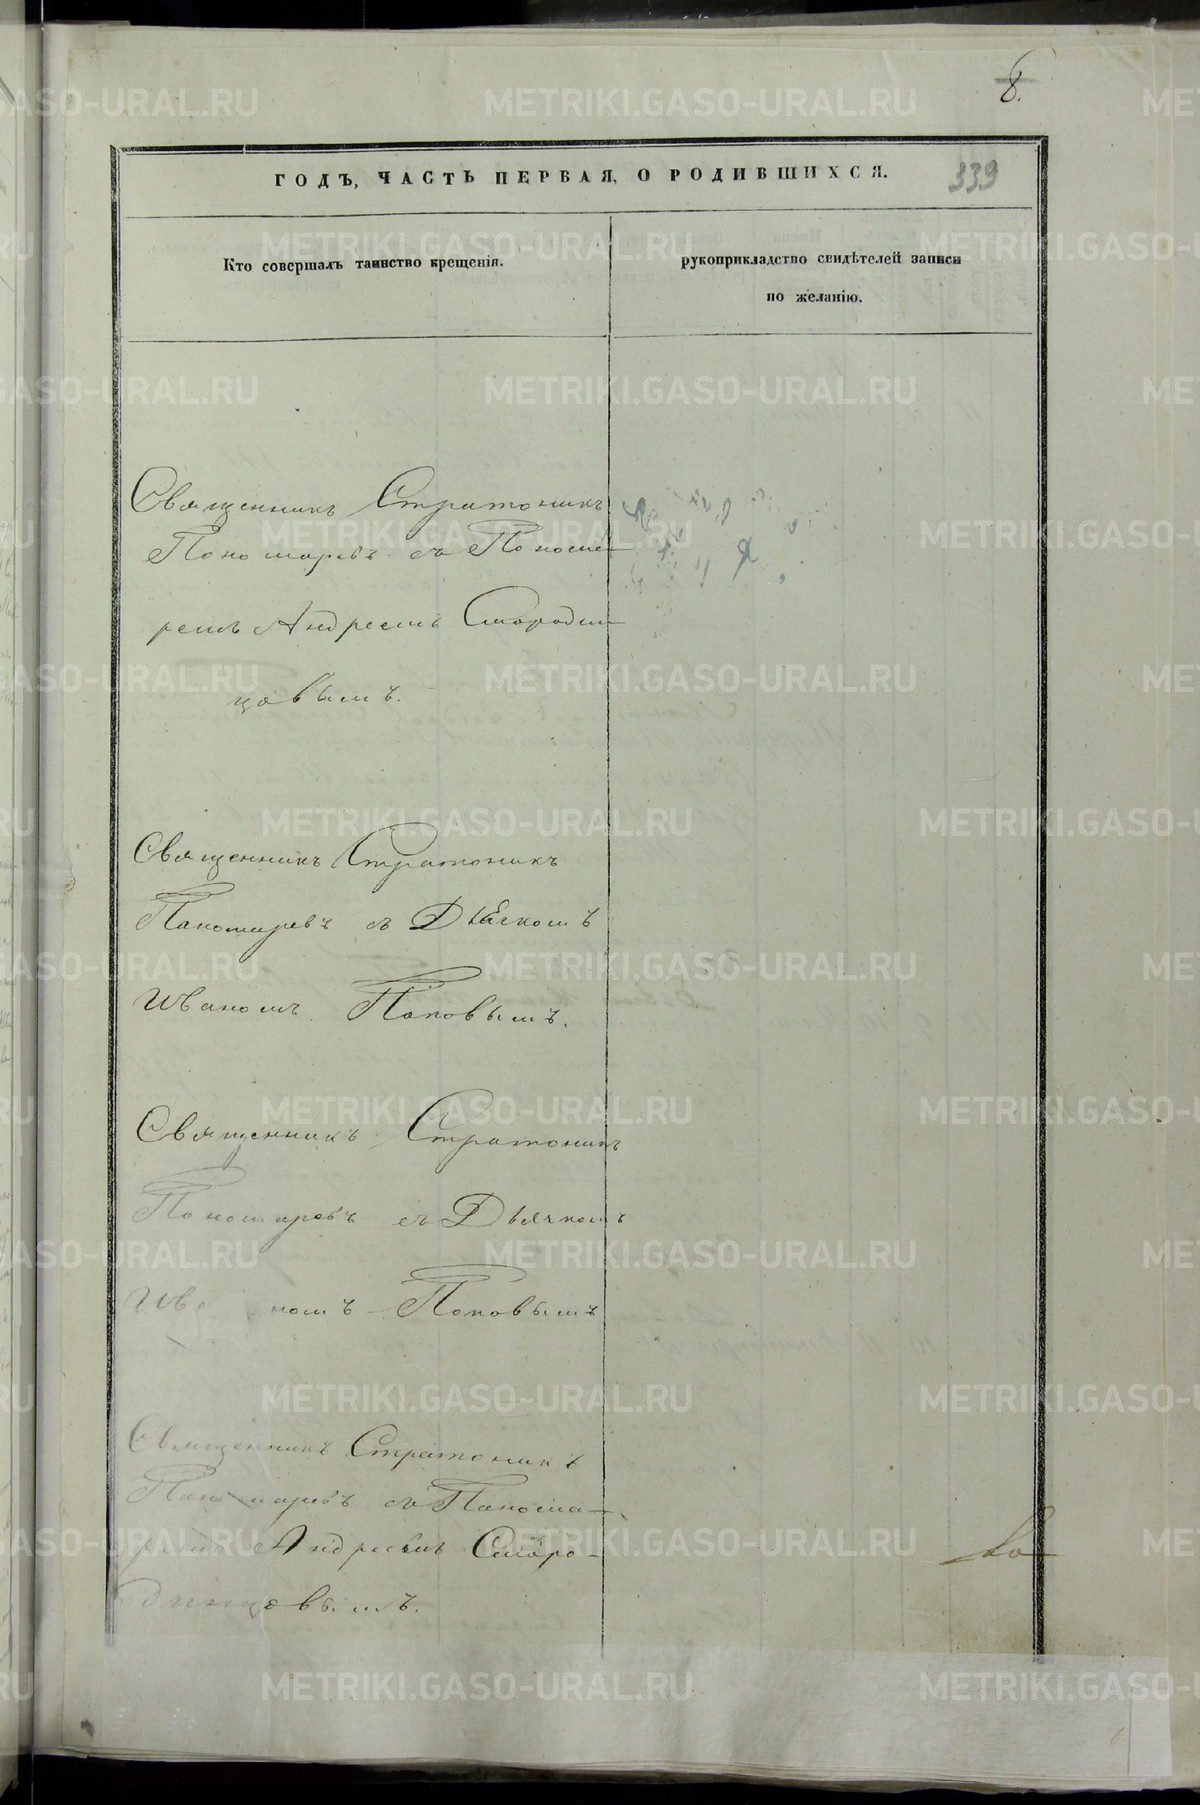 8.
ГОДЪ, ЧАСТЬ ПЕРВАЯ, О РОДИВШИХСЯ.
339
Кто совершалъ таинство крещенія.
рукоприкладство свидѣтелей записи
по желанію.
Священникъ Стратоникъ
Пономаревъ съ Понома-
ремъ Андреемъ Смородин-
цовымъ.
Священникъ Стратоникъ
Пономаревъ съ Дьячкомъ
Иваномъ Поповымъ.
Священникъ Стратоникъ
Пономаревъ съ Дьячкомъ
Иваномъ Поповымъ
Священникъ Стратоникъ
Пономаревъ съ Понома-
ремъ Андреемъ Сморо-
динцовымъ.
METRIKI.GASO-URAL.RU